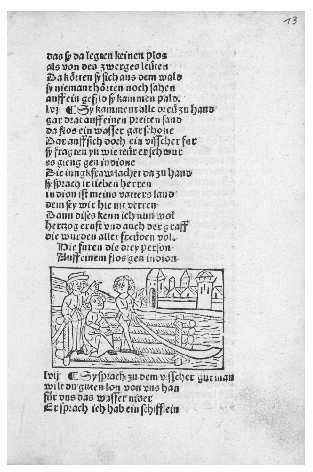 13
das sy da legten keinen plos
als von des zwerges leüten
Da körten sy sich aus dem wald
sy niemant hörten noch sahen
auff ein gefild sy kammen pald.
lvj ¶ Sy kamment alle dreü zu hand
gar drat auff einen preiten sand
da flos ein wasser gar schone
Dar auff sich doch ein visscher
sy fragten yn wie
es gieng gen indione
Die iungkfraw sacher da zu hand
sy sprach ir lieben herren
in dion ist meins vatters land
dem sey wir hie nit verren
Dann dises kenn ich nun wol
hertzog ernst vnd auch der graff
die wurden aller freüden vol.
Hie furen die drey person
Auff einem flos gen indion
lvij ¶ Sy sprach zu dem visscher gut man
wilt du guten lon von vns han
für vns das wasser nider
Er sprach ich hab ein schifflein